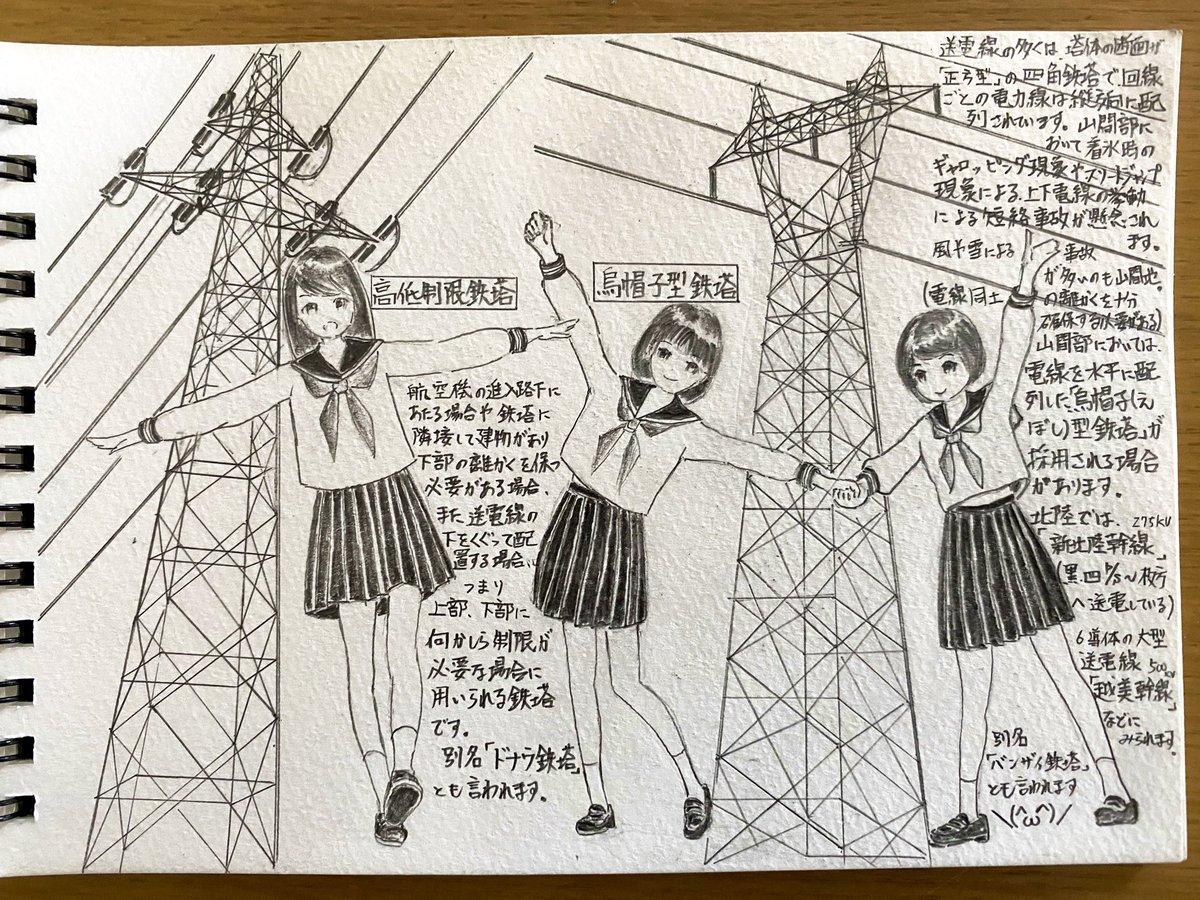 高低制限鉄塔
航空機の進入路下に
あたる場合や鉄塔に
隣接して建物があり
下部の離かくを保つ
必要がある場合、
また、送電線の
下をくぐって配
置する場合、
つまり
上部、下部に
何かしら制限が
必要な場合に
用いられる鉄塔
です。
別名「ドナウ鉄塔」
とも言われます。
烏帽子型鉄塔
送電線の多くは塔体の断面が
「正方型」の四角鉄塔で回線
ごとの電力線は縦方向に配
列されています。山間部に
おいて着氷時の
ギャロッピング現象やスリートジャンプ
現象による、上下電線の挙動
による短絡事故が懸念され
ます。
風や雪による事故
が多いのも山間地。
(電線同士の離かくを十分
確保する必要がある)
山間部においては、
電線を水平に配
列した「烏帽子(え
ぼし)型鉄塔」が
採用される場合
があります。
北陸では、275kV
「新北陸幹線」
(黒四P/S〜
へ送電している)
6導体の大型
送電線 500kV
「越美幹線」
などに
みられます。
別名
「バンザイ鉄塔」
とも言われます
\(^ω^)/